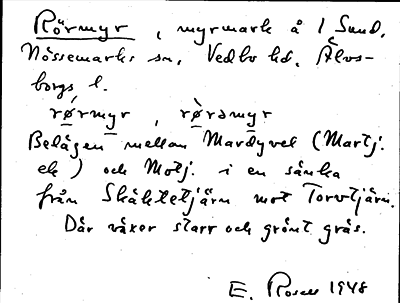 Rörmyr, myrmark å 1 Sund,
Nössemarks sn, Vedbo hd, Älvs-
borgs l.
rø̀rmyr, rø̀rəmyr
Belägen mellan Mardyvel (Martj.
ek) och Motj. i en sänka
från Skäktetjärn mot Torvtjärn.
Där växer starr och grönt gräs.
E. Rosell 1948